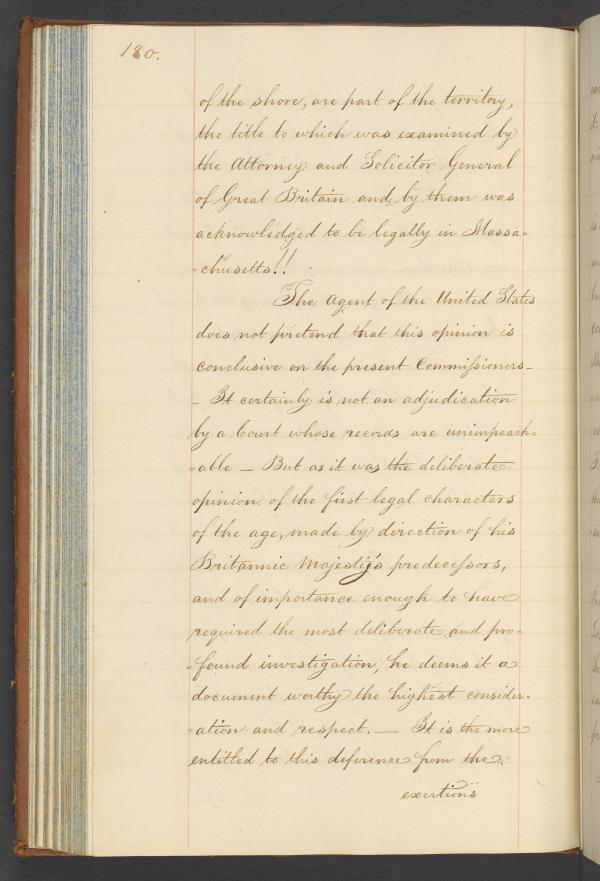 180.
of the shore, are part of the territory,
the title to which was examined by
the Attorney and Solicitor General
of Great Britain and by them was
acknowledged to be legally in Massa-
-chusetts!!
The Agent of the United States
does not pretend that this opinion is
conclusive on the present Commissioners_
_ It certainly is not an adjudication
by a Court whose records are unimpeach=
=able _ But as it was the deliberate
opinion of the first legal characters
of the age, made by direction of his
Britannic Majesty's predecessors,
and of importance enough to have
required the most deliberate and pro=
=found investigation, he deems it a
document worthy the highest consider-
=ation and respect. — It is the more
entitled to this deference from the
exertions